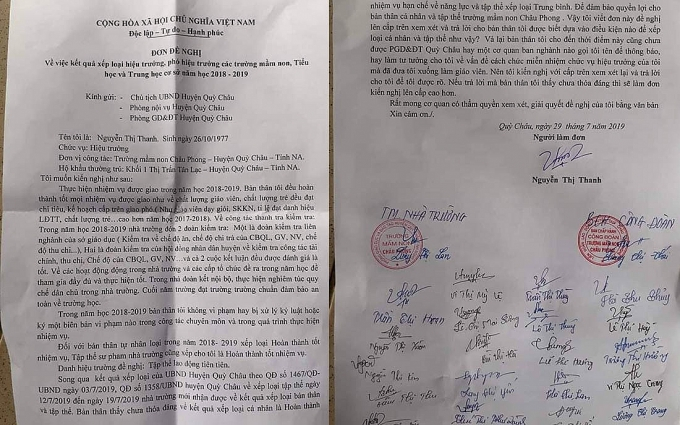 CỘNG HÒA XÃ HỘI CHỦ NGHĨA VIỆT NAM
Độc lập – Tự do – Hạnh phúc
ĐƠN ĐỀ NGHỊ
Về việc kết quả xếp loại hiệu trưởng, phó hiệu trưởng các trường mầm non, Tiểu
học và Trung học cơ sở năm học 2018 - 2019
Kính gửi: - Chủ tịch UBND Huyện Quỳ Châu
- Phòng nội vụ Huyện Quỳ Châu
- Phòng GD&ĐT Huyện Quỳ Châu
Tôi tên là: Nguyễn Thị Thanh. Sinh ngày 26/10/1977
Chức vụ: Hiệu trưởng
Đơn vị công tác: Trường mầm non Châu Phong – Huyện Quỳ Châu – Tỉnh NA.
Hộ khẩu thường trú: Khối 1 Thị Trấn Tân Lạc – Huyện Quỳ Châu – Tỉnh NA.
Tôi muốn kiến nghị như sau:
Thực hiện nhiệm vụ được giao trong năm học 2018-2019. Bản thân tôi đều hoàn
thành tốt mọi nhiệm vụ được giao như về chất lượng giáo viên, chất lượng trẻ đều đạt
chỉ tiêu, kế hoạch cấp trên giao phó ( Như giáo viên dạy giỏi, SKKN, tỉ lệ đạt danh hiệu
LĐTT, chất lượng trẻ…cao hơn năm học 2017-2018). Về công tác thanh tra kiểm tra:
Trong năm học 2018-2019 nhà trường đón 2 đoàn kiểm tra: Một là đoàn kiểm tra liên
nghành của sở giáo dục ( Kiểm tra về chế độ ăn, chế độ chi trả của CBQL, GV, NV, chế
độ thu chi...), Hai là đoàn kiểm tra của hội đồng nhân dân huyện về kiểm tra công tác tài
chính, thu chi, Chế độ của CBQL, GV, NV...và cả 2 cuộc kết luận đều được đánh giá là
tốt. Về các hoạt động động trong nhà trường và các cấp tổ chức đề ra trong năm học để
tham gia đầy đủ và thực hiện tốt. Trong nhà đoàn kết nội bộ, thực hiện nghiêm túc quy
chế dân chủ trong nhà trường. Cuối năm trường đạt trường trường chuẩn đảm bảo an
toàn về trường học.
Trong năm học 2018-2019 bản thân tôi không vi phạm hay bị xử lý kỷ luật hoặc
ký một biên bản vi phạm nào trong công tác chuyên môn và trong quá trình thực hiện
nhiệm vụ.
Đối với bản thân tự nhận loại trong năm 2018- 2019 xếp loại Hoàn thành tốt
nhiệm vụ, Tập thể sư phạm nhà trường cũng xếp cho tôi là Hoàn thành tốt nhiệm vụ.
Danh hiệu trường đề nghị: Tập thể lao động tiên tiến.
Song qua kết quả xếp loại của UBND Huyện Quỳ Châu theo QĐ số 1467/QĐ-
UBND ngày 03/7/2019, QĐ số 1358/UBND huyện Quỳ Châu về xếp loại tập thể ngày
12/7/2019 đến ngày 19/7/2019 nhà trường mới nhận được về kết quả xếp loại bản thân
và tập thể. Bản thân thấy chưa thỏa đáng về kết quả xếp loại cá nhân là Hoàn thành
nhiệm vụ hạn chế về năng lực và tập thể xếp loại Trung bình. Để đảm bảo quyền lợi cho
bản thân cá nhân và tập thể trường mầm non Châu Phong. Vậy tôi viết đơn này đề nghị
lên cấp trên xem xét và trả lời cho bản thân tôi được biết dựa vào điều kiện nào để xếp
loại cá nhân và tập thể như vậy? Và lại bản thân tôi cho đến thời điểm này cũng chưa
được PGD&ĐT Quỳ Châu hay một cơ quan ban nghành nào gọi tôi tên để thông báo,
hay làm tư tưởng cho tôi về vấn đề cách chức miễn nhiệm chức vụ hiệu trưởng của tôi
mà đã đưa tôi xuống làm giáo viên. Nên tôi kiến nghị với cấp trên xem xét lại và trả lời
cho tôi để tôi được rõ. Nếu trả lời mà bản thân tôi thấy chưa thỏa đáng thì sẽ làm đơn
kiến nghị lên cấp cao hơn.
Rất mong cơ quan có thẩm quyền xem xét, giải quyết đề nghị của tôi bằng văn bản
Xin cảm ơn./.
Quỳ Châu, ngày 29 tháng 7 năm 2019
Người làm đơn
Nguyễn Thị Thanh
TM NHÀ TRƯỜNG
BCH CÔNG ĐOÀN
TRƯỜNG
MẦM NON
CHÂU PHONG
BAN CHẤP HÀNH
CÔNG ĐOÀN
TRƯỜNG MẦM NON
CHÂU PHONG
Vi Thị Mỹ Lệ